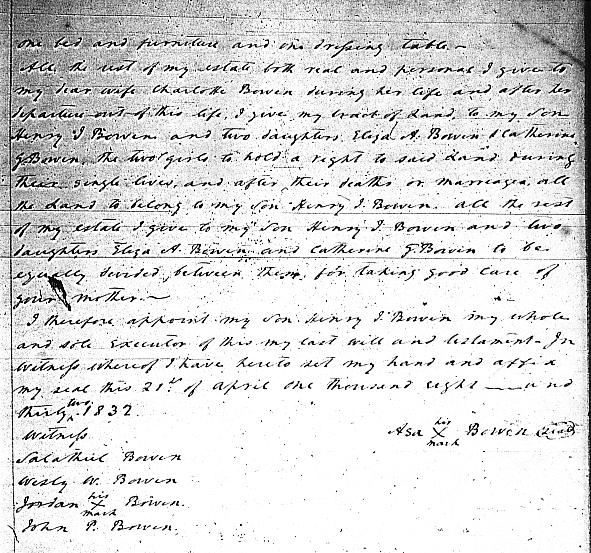 one bed and furniture and one dressing table—
All the rest of my estate both real and personal I give to
my dear wife Charlotte Bowen during her life and after her
departure out of this life, I give my tract of Land, to my Son
Henry I Bowen and two daughters Eliza A. Bowen & Catherine
G Bowen, the two girls to hold a right to said Land during
their single lives, and after their deaths or marriages, all
the Land to belong to my son Henry I. Bowen. all the rest
of my estate I give to my Son Henry I Bowen and two
daughters Eliza A. Bowen and Catherine G. Bowen to be
equally divided between them, for taking good care of
your mother.—
I therefore appoint my son Henry I Bowen my whole
and sole Executor of this my last will and testament— In
witness whereof I have hereto set my hand and affix
my seal this 21st of April one thousand eight — and
thirty two. 1832.
Witness
Asa his X mark Bowen (seal)
Salathiel Bowen
Wesly W. Bowen
Jordan his X mark Bowen.
John P. Bowen.